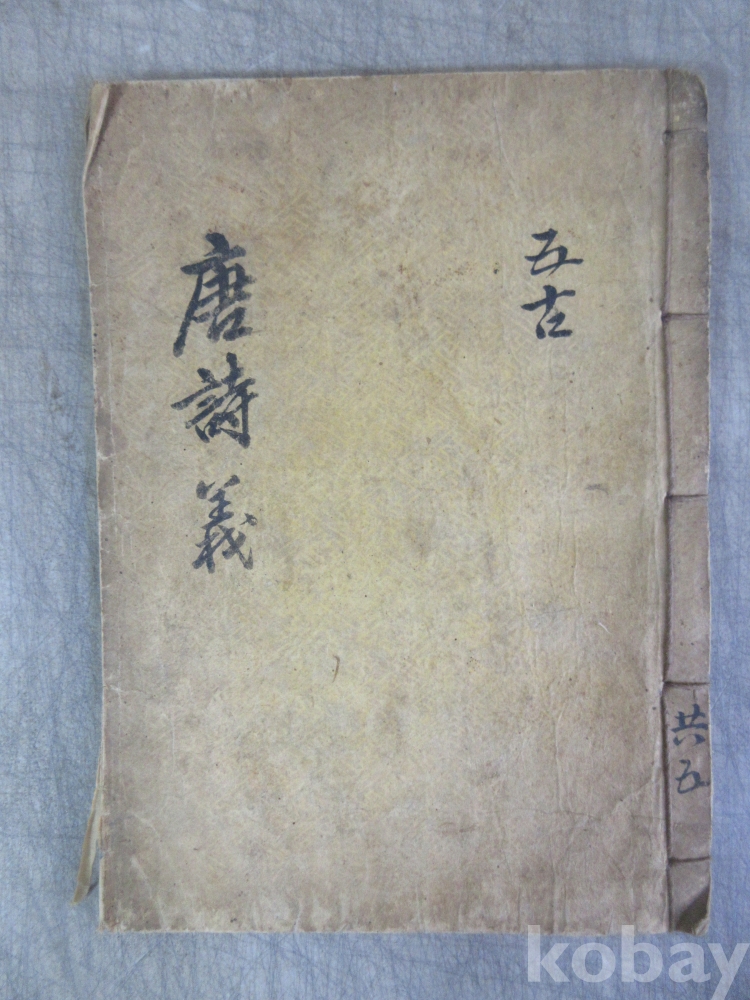 五古
唐詩義
共五
kobay